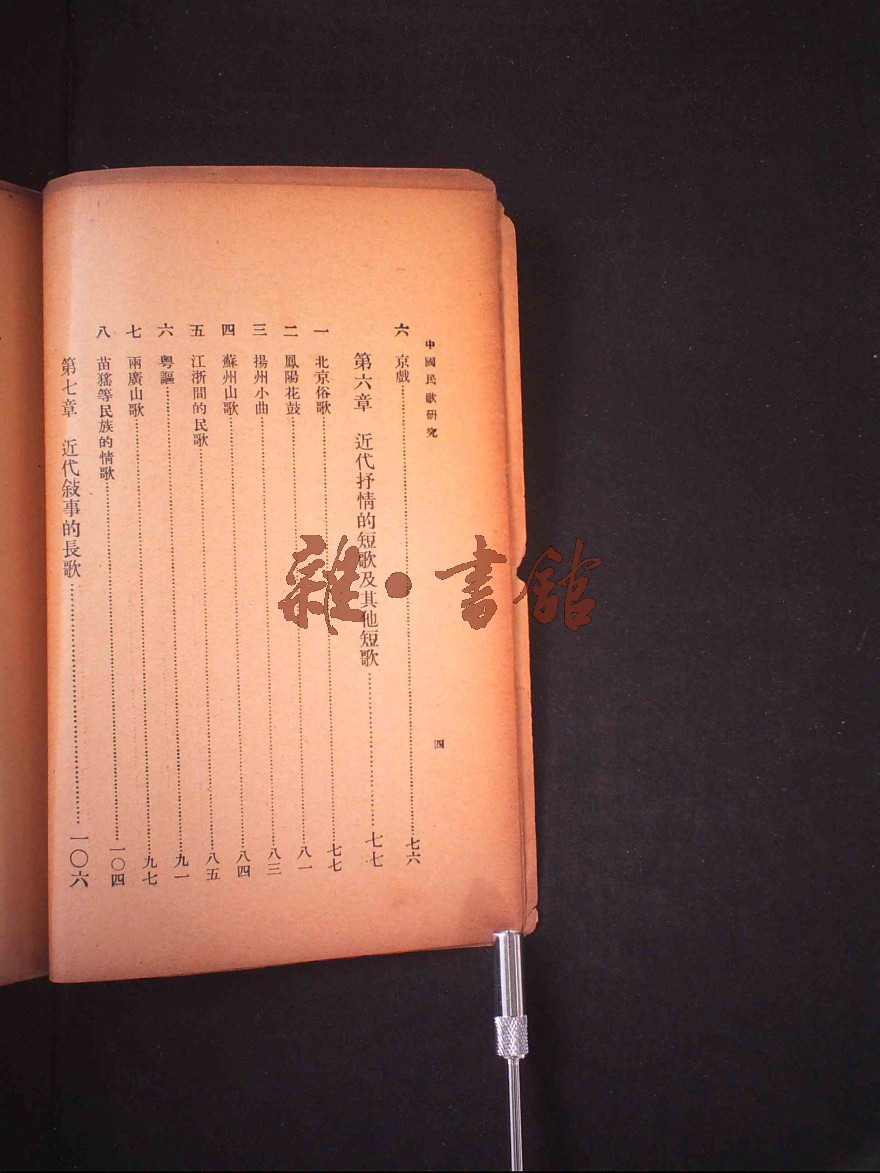 中國民歌研究
四
六 京戲 七六
第六章 近代抒情的短歌及其他短歌 七七
一 北京俗歌 七七
二 鳳陽花鼓 八一
三 揚州小曲 八三
四 蘇州山歌 八四
五 江浙間的民歌 八五
六 粤謳 九一
七 兩廣山歌 九七
八 苗猺等民族的情歌 一〇四
第七章 近代敍事的長歌 一〇六
雜·書館